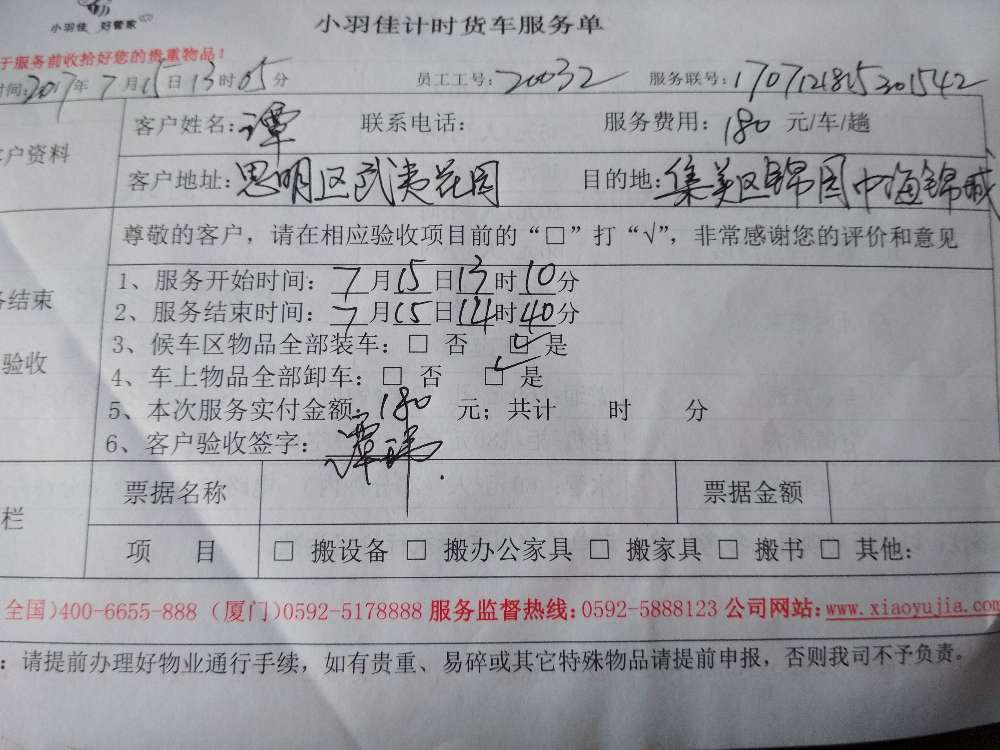 小羽佳 好管家
小羽佳计时货车服务单
于服务前收拾好您的贵重物品！
时间：2017年7月15日13时05分 员工工号：20032 服务联号：1707121815301542
客户资料
客户姓名：谭 联系电话： 服务费用：180 元/车/趟
客户地址：思明区武夷花园 目的地：集美区锦园中海锦城
尊敬的客户，请在相应验收项目前的“□”打“√”，非常感谢您的评价和意见
务结束
验收
1、服务开始时间：7月15日13时10分
2、服务结束时间：7月15日14时40分
3、候车区物品全部装车：□ 否 ☑ 是
4、车上物品全部卸车：□ 否 ☑ 是
5、本次服务实付金额：180 元；共计 时 分
6、客户验收签字：谭
栏
票据名称 票据金额
项 目 □ 搬设备 □ 搬办公家具 □ 搬家具 □ 搬书 □ 其他：
全国）400-6655-888（厦门）0592-5178888 服务监督热线：0592-5888123 公司网站：www.xiaoyujia.com
：请提前办理好物业通行手续，如有贵重、易碎或其它特殊物品请提前申报，否则我司不予负责。